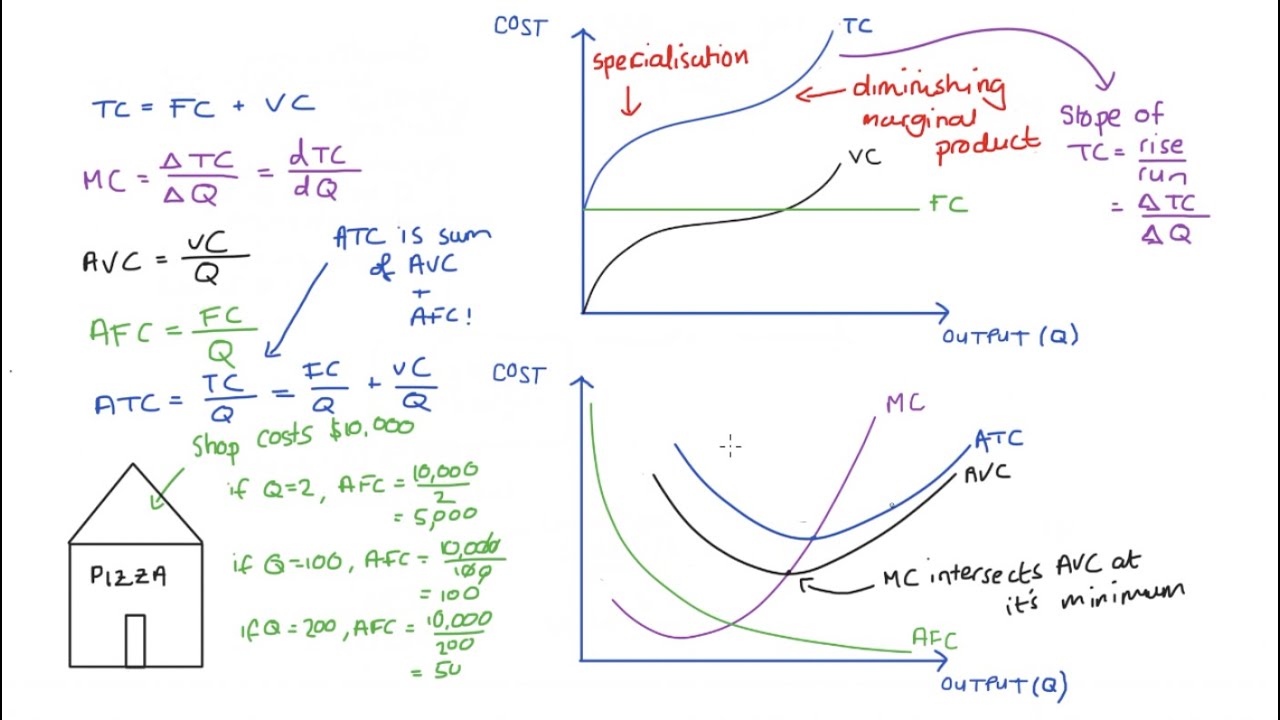 TC = FC + VC
MC = ΔTC/ΔQ = dTC/dQ
AVC = VC/Q
ATC is sum
of AVC
+
AFC!
AFC = FC/Q
ATC = TC/Q = FC/Q + VC/Q
Shop costs $10,000
if Q=2, AFC = 10,000/2
= 5,000
if Q=100, AFC = 10,000/100
= 100
if Q=200, AFC = 10,000/200
= 50
PIZZA
COST
specialisation
TC
diminishing
marginal
product
VC
FC
Slope of
TC = rise/run
= ΔTC/ΔQ
OUTPUT (Q)
COST
MC
ATC
AVC
MC intersects AVC at
it's minimum
AFC
OUTPUT (Q)